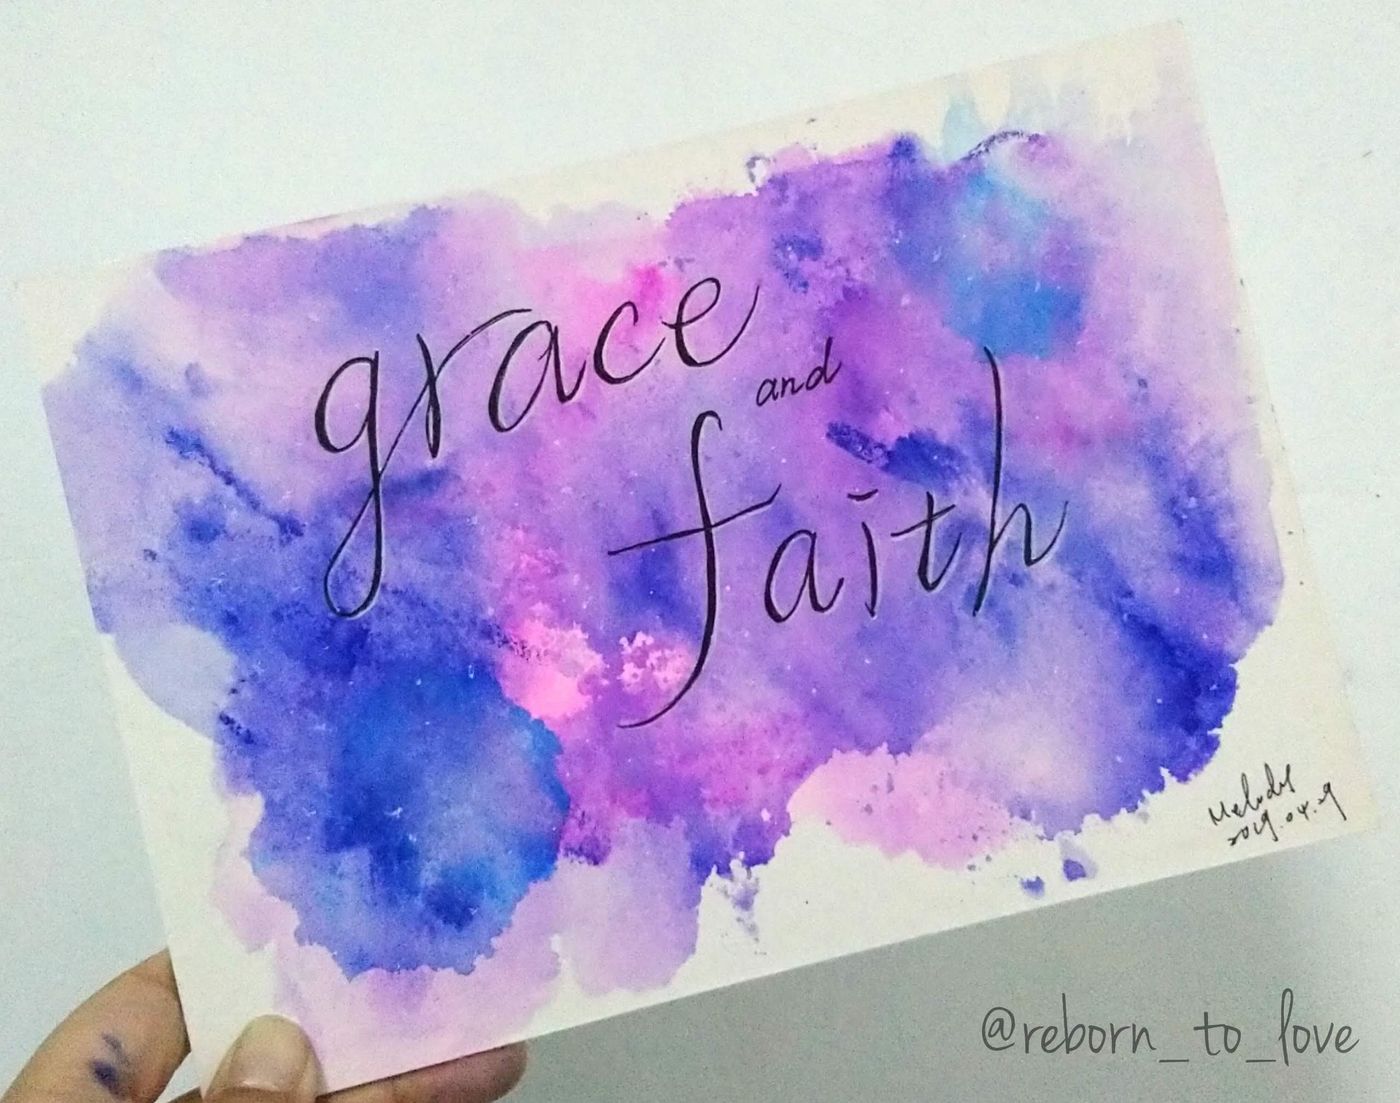 grace
and
faith
Melody
2019.04.09
@reborn_to_love